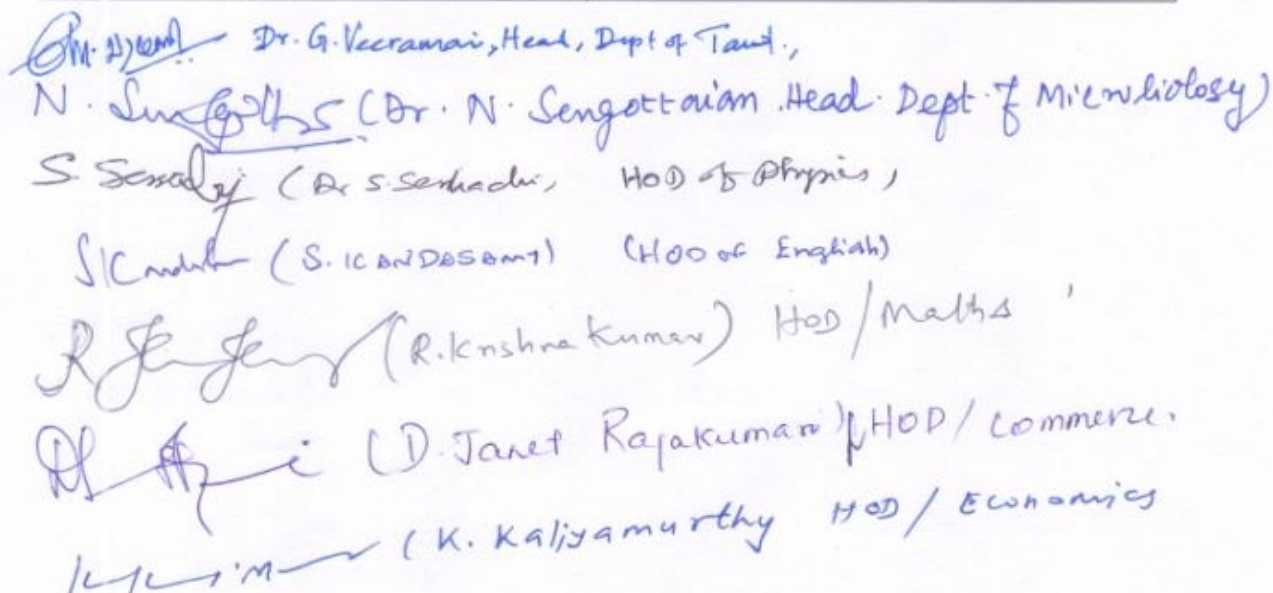 Dr. G. Veeramani, Head, Dept of Tamil.,
N. (Dr. N. Sengottaian Head Dept of Microbiology)
S. (Dr S. Seshadri, HOD of Physics,
(S. KANDASAMY) (HOD of English)
R (R. Krishna Kumar) HOD/Maths
(D. Janet Rajakumari) HOD/Commerce.
(K. Kaliyamurthy HOD/Economics